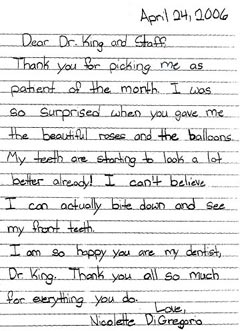 April 24, 2006
Dear Dr. King and Staff,
Thank you for picking me as
patient of the month. I was
so surprised when you gave me
the beautiful roses and the balloons.
My teeth are starting to look a lot
better already! I can't believe
I can actually bite down and see
my front teeth.
I am so happy you are my dentist,
Dr. King. Thank you all so much
for everything you do.
Love,
Nicolette DiGregoro